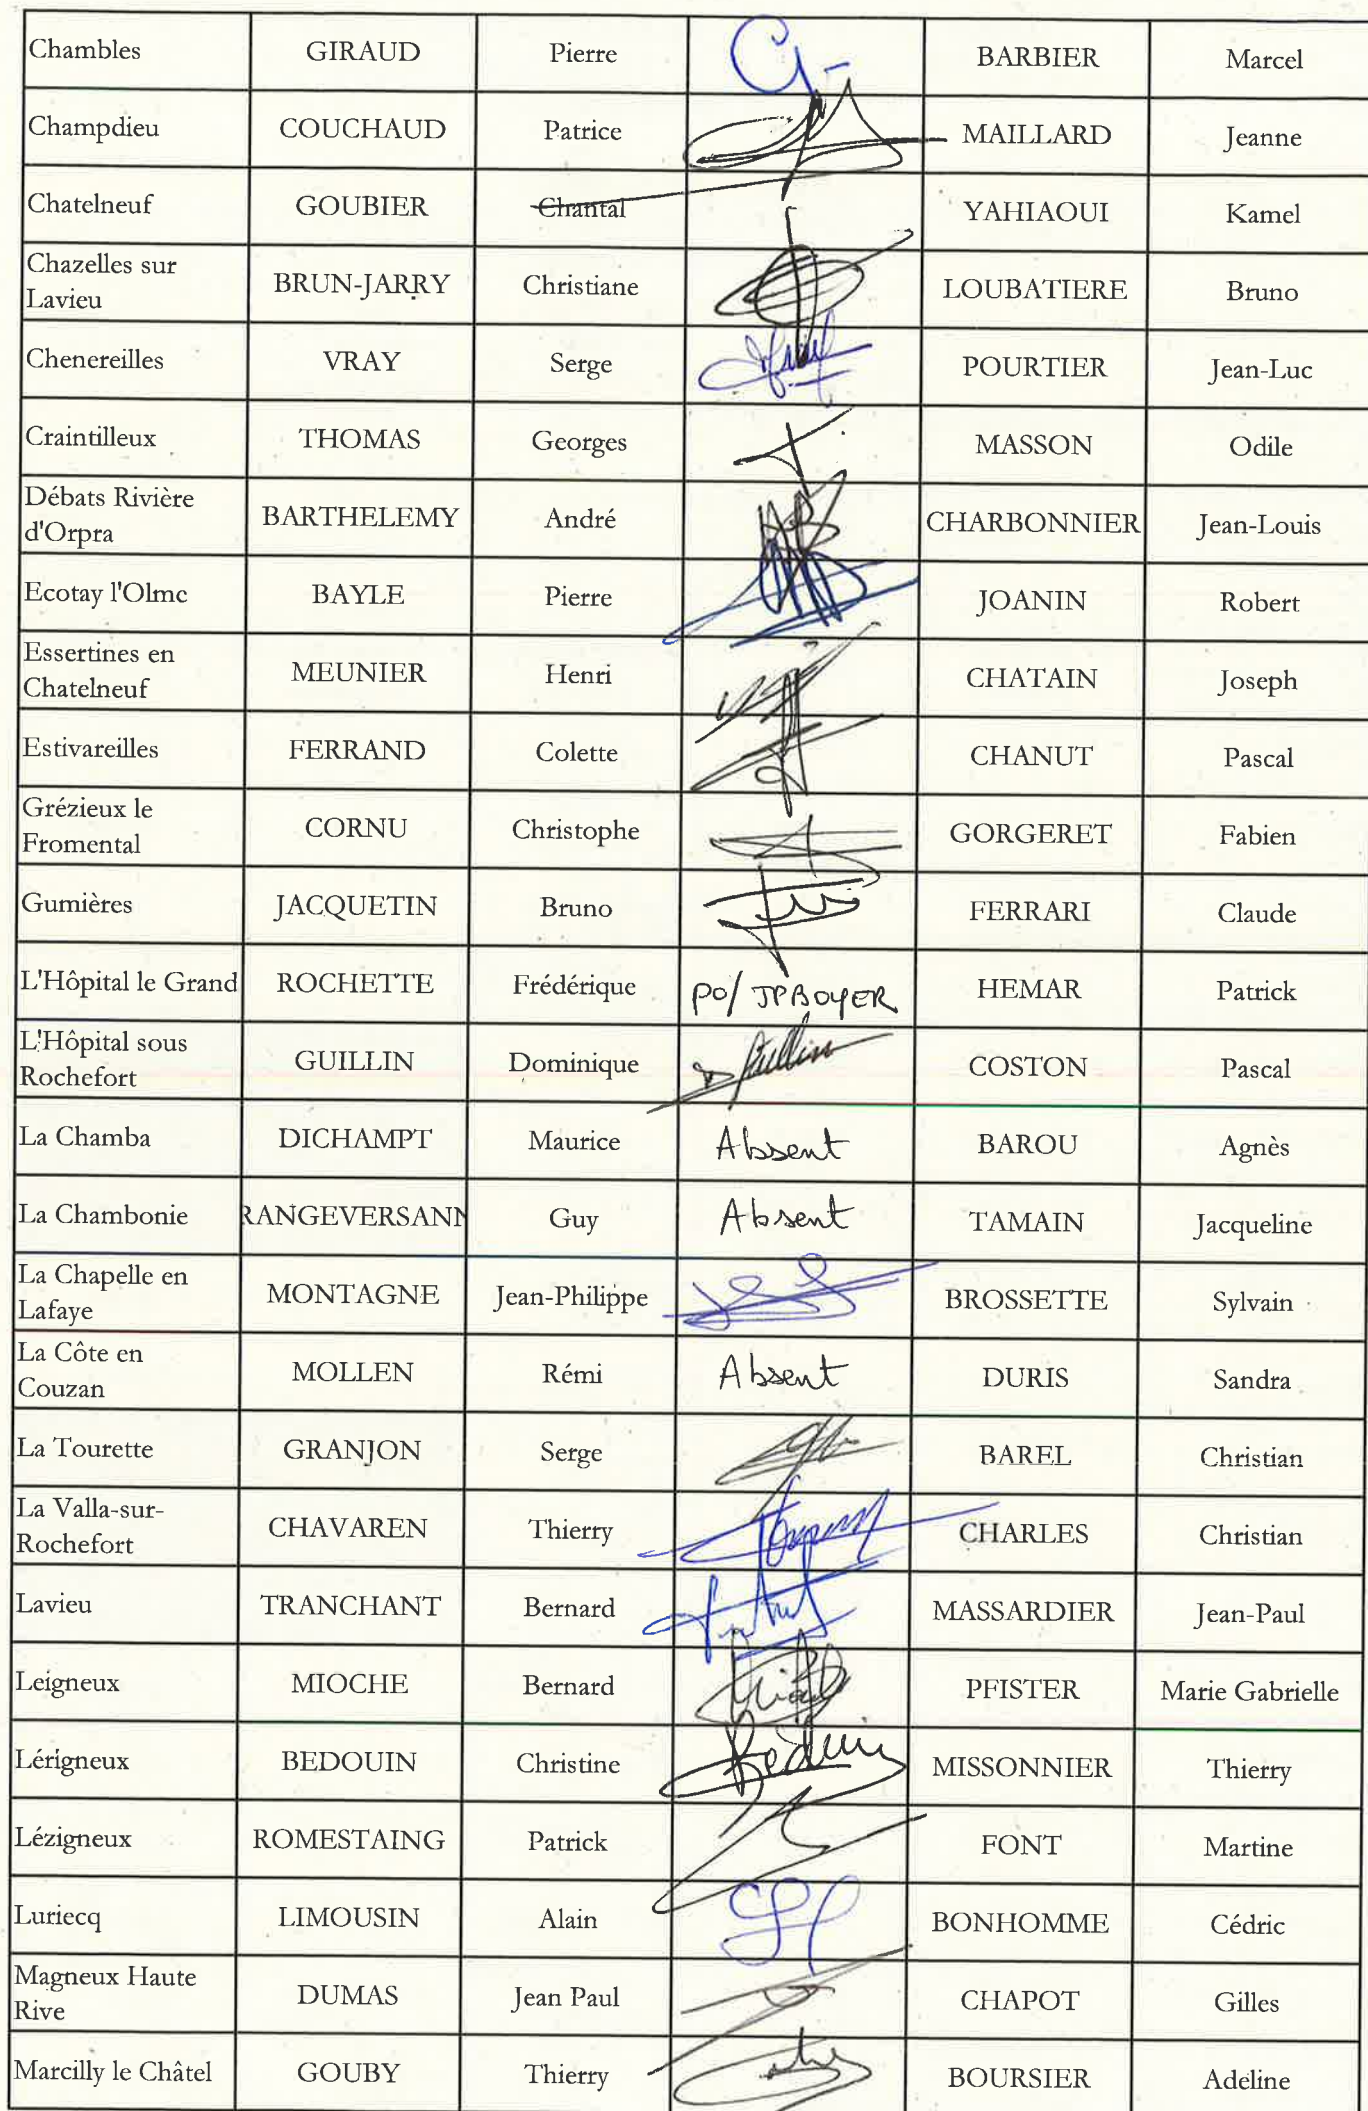 Chambles GIRAUD Pierre BARBIER Marcel
Champdieu COUCHAUD Patrice MAILLARD Jeanne
Chatelneuf GOUBIER Chantal YAHIAOUI Kamel
Chazelles sur
Lavieu BRUN-JARRY Christiane LOUBATIERE Bruno
Chenereilles VRAY Serge POURTIER Jean-Luc
Craintilleux THOMAS Georges MASSON Odile
Débats Rivière
d'Orpra BARTHELEMY André CHARBONNIER Jean-Louis
Ecotay l'Olme BAYLE Pierre JOANIN Robert
Essertines en
Chatelneuf MEUNIER Henri CHATAIN Joseph
Estivareilles FERRAND Colette CHANUT Pascal
Grézieux le
Fromental CORNU Christophe GORGERET Fabien
Gumières JACQUETIN Bruno FERRARI Claude
L'Hôpital le Grand ROCHETTE Frédérique po/ JP BOYER HEMAR Patrick
L'Hôpital sous
Rochefort GUILLIN Dominique COSTON Pascal
La Chamba DICHAMPT Maurice Absent BAROU Agnès
La Chambonie RANGEVERSANN Guy Absent TAMAIN Jacqueline
La Chapelle en
Lafaye MONTAGNE Jean-Philippe BROSSETTE Sylvain
La Côte en
Couzan MOLLEN Rémi Absent DURIS Sandra
La Tourette GRANJON Serge BAREL Christian
La Valla-sur-
Rochefort CHAVAREN Thierry CHARLES Christian
Lavieu TRANCHANT Bernard MASSARDIER Jean-Paul
Leigneux MIOCHE Bernard PFISTER Marie Gabrielle
Lérigneux BEDOUIN Christine MISSONNIER Thierry
Lézigneux ROMESTAING Patrick FONT Martine
Luriecq LIMOUSIN Alain BONHOMME Cédric
Magneux Haute
Rive DUMAS Jean Paul CHAPOT Gilles
Marcilly le Châtel GOUBY Thierry BOURSIER Adeline